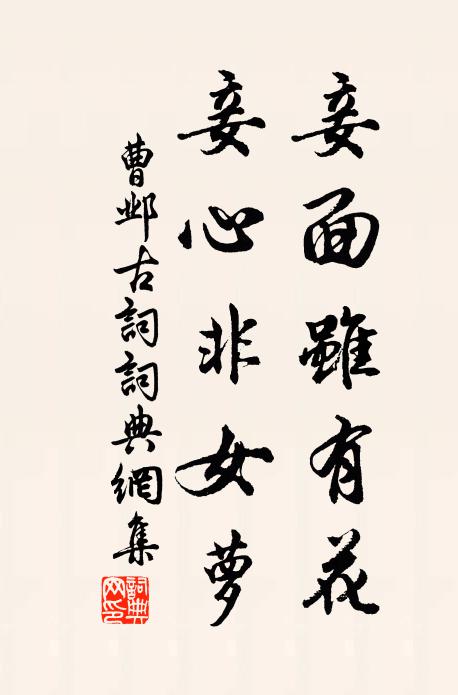 妾面雖有花
妾心非女萝
曹邺古詞詞典網集
詞典
网印